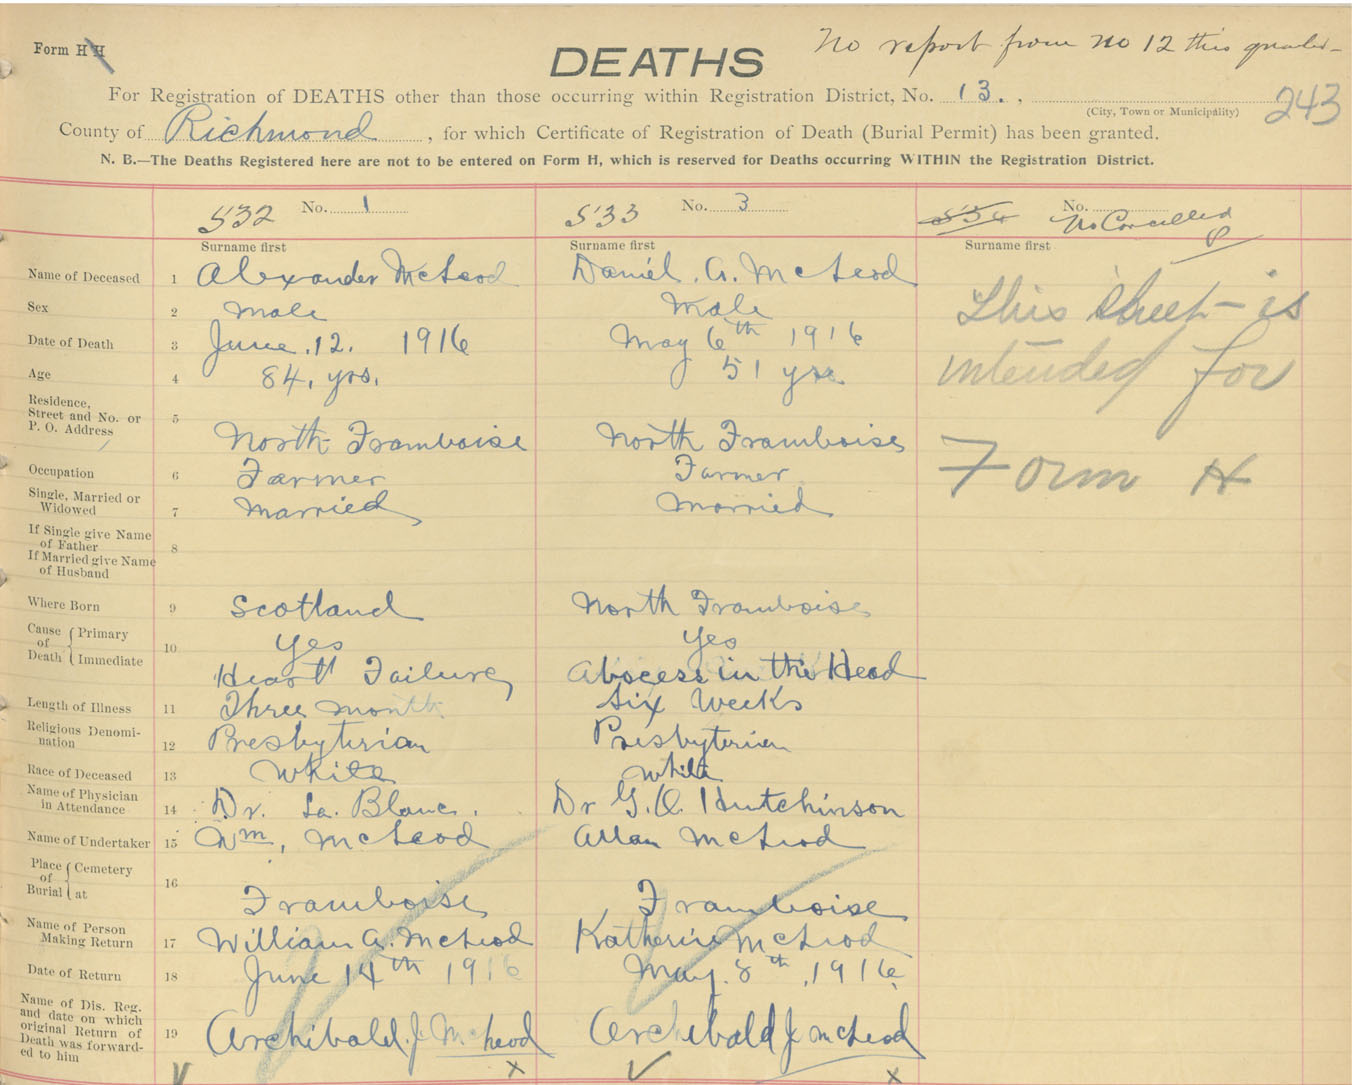 Form H H
DEATHS
No report from No 12 this quarter
For Registration of DEATHS other than those occurring within Registration District, No. 13. ,
(City, Town or Municipality)
243
County of Richmond, for which Certificate of Registration of Death (Burial Permit) has been granted.
N. B.—The Deaths Registered here are not to be entered on Form H, which is reserved for Deaths occurring WITHIN the Registration District.
532 No. 1 533 No. 3 534 No. No Cancelled
Surname first Surname first Surname first
Name of Deceased 1 Alexander McLeod Daniel. A. McLeod
Sex 2 Male Male
Date of Death 3 June. 12. 1916 May 6th 1916
Age 4 84. yrs. 51 yrs
Residence,
Street and No. or
P. O. Address 5 North Framboise North Framboise
Occupation 6 Farmer Farmer
Single, Married or
Widowed 7 Married Married
If Single give Name
of Father
If Married give Name
of Husband 8
Where Born 9 Scotland North Framboise
Cause of Death { Primary Yes Yes
Immediate 10 Heart Failure Abscess in the Head
Length of Illness 11 Three month Six Weeks
Religious Denomi-
nation 12 Presbyterian Presbyterian
Race of Deceased 13 White White
Name of Physician
in Attendance 14 Dr. La. Blanc. Dr G. O. Hutchinson
Name of Undertaker 15 Wm, McLeod Allan McLeod
Place of Burial { Cemetery
at 16 Framboise Framboise
Name of Person
Making Return 17 William A. McLeod Katherine McLeod
Date of Return 18 June 14th 1916 May. 8th, 1916
Name of Dis. Reg.
and date on which
original Return of
Death was forward-
ed to him 19 Archibald. J. McLeod Archibald J McLeod
x x
This sheet is
intended for
Form H